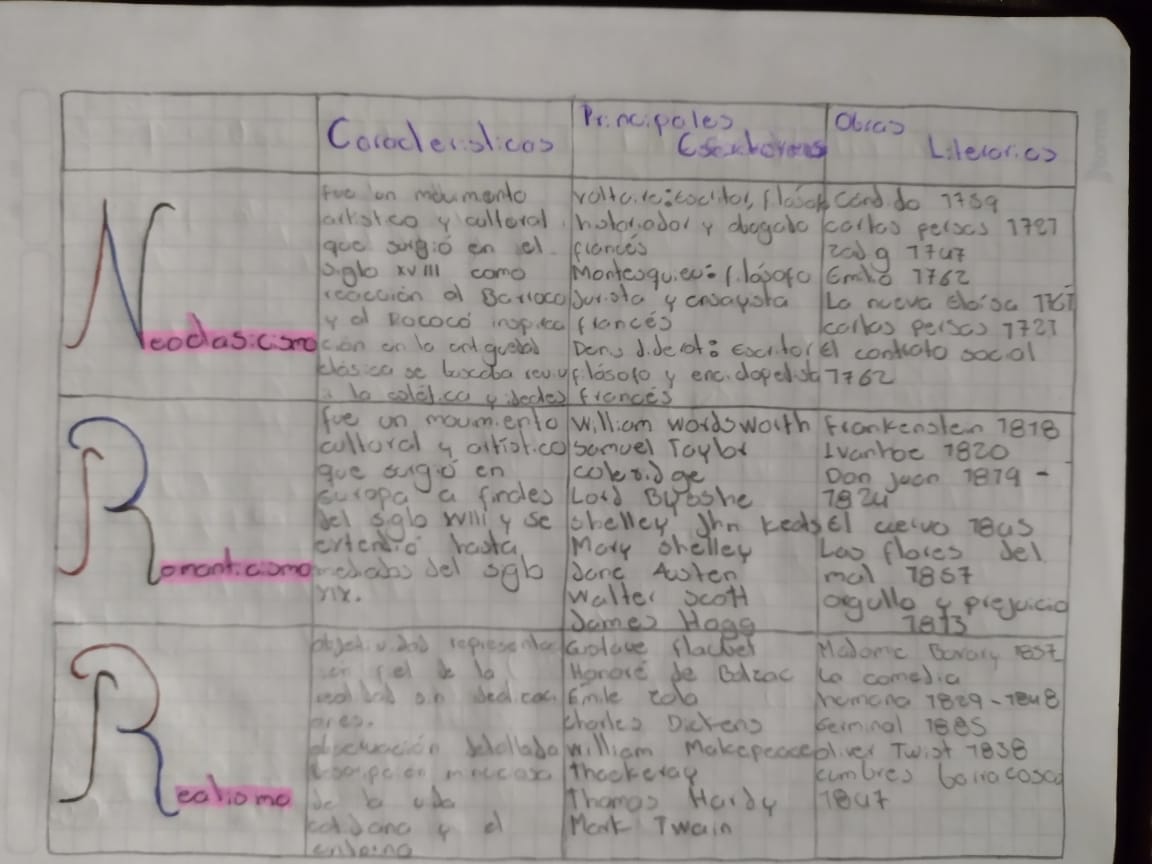 Características
Principales
Escritores
Obras
Literarias
Neoclasicismo
fue un movimiento
artístico y cultural
que surgió en el
siglo XVIII como
reacción al Barroco
y al Rococó inspira
ción en la antiguedad
clásica se buscaba reviv
la estética y ideales
Voltaire: escritor, filósof
historiador y abogado
francés
Montesquieu: filósofo
Jurista y ensayista
francés
Denis diderot: Escritor
filósofo y enciclopedista
francés
Candido 1759
cartas persas 1721
Zadig 1747
Emilio 1762
La nueva eloísa 1761
cartas persas 1721
El contrato social
1762
Romanticismo
fue un movimiento
cultural y artístico
que surgió en
europa a finales
del siglo XVIII y se
extendió hasta
mediados del siglo
XIX.
William wordsworth
Samuel Taylor
coleridge
Lord Bysshe
shelley Jhn Keats
Mary Shelley
Jane Austen
Walter Scott
James Hogg
Frankenstein 1818
Ivanhoe 1820
Don Juan 1819 -
1824
El cuervo 1845
Las flores del
mal 1857
orgullo y prejuicio
1813
Realismo
objetividad representac
ión fiel de la
realidad sin
observación detallada
descripción minuciosa
de la vida
cotidiana y el
entorno
Gustave flaubet
Honoré de Balzac
Émile zola
Charles Dickens
William Makepeace
Thackeray
Thomas Hardy
Mark Twain
Madame Bovary 1857
La comedia
humana 1829-1848
Germinal 1885
oliver Twist 1838
cumbres borrascosa
1847